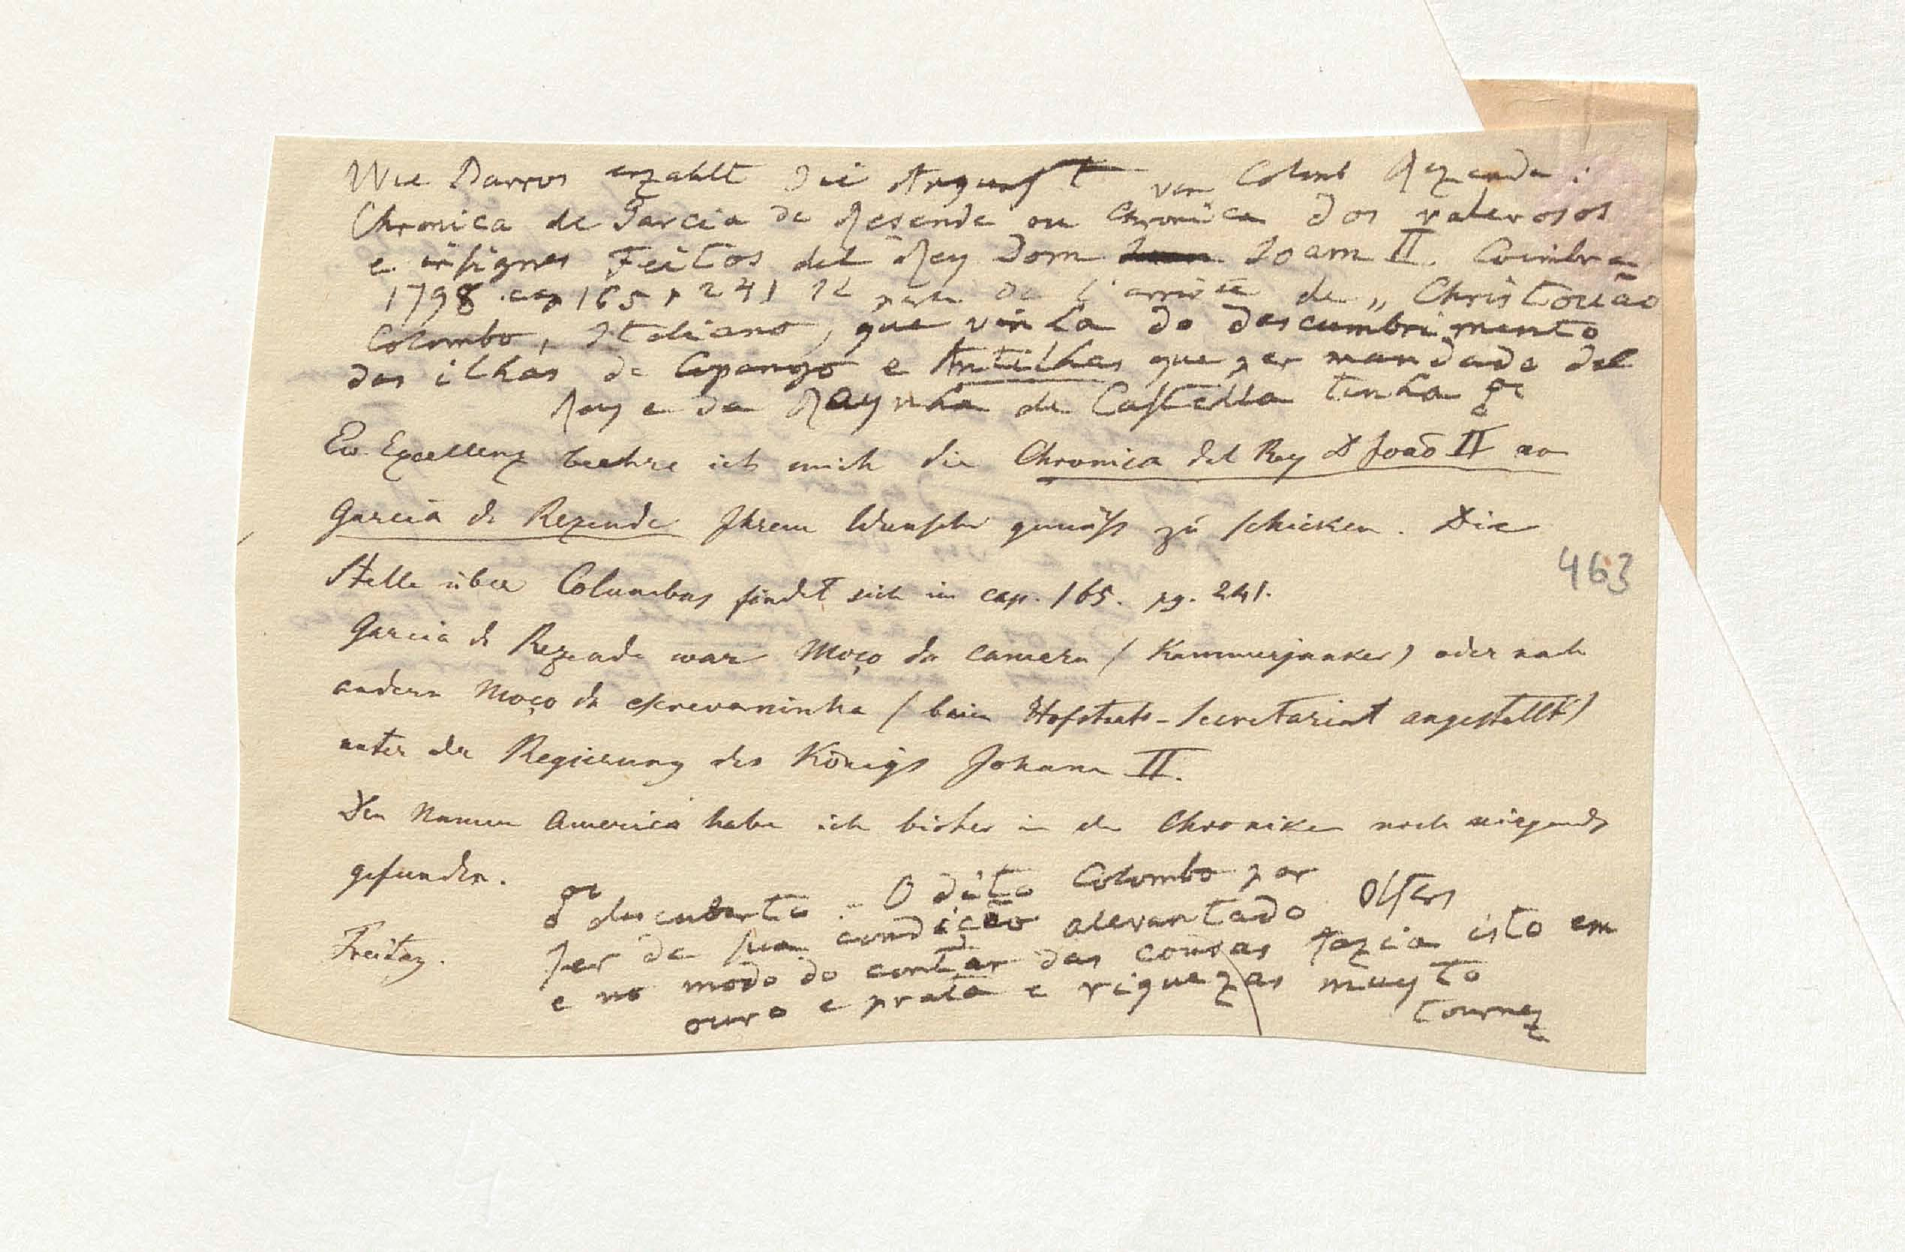 Wie Barros erzahlt die Ankunft von Colomb Rezende:
Chronica de Garcia de Resende ou Chronica dos valerosos
e insignes Feitos del Rey Dom Joam II. Coimbra
1798 cap 165 p 241 Il parle de l'arrivée de „Christouão
Colombo, Italiano, que vinha do descumbrimento
das ilhas de Cipango e Antilhas que per mandado del
Rey e da Raynha de Castella tinha
Ew. Excellenz beehre ich mich die Chronica del Rey D João II von
Garcia de Rezende Ihrem Wunsche gemäß zu schicken. Die
Stelle über Columbus findet sich in cap. 165. pg. 241.
Garcia de Rezende war Moço da camera (Kammerjunker) oder nach
andern Moço da escrevaninha (beim Hofstaats-Secretariat angestellt)
unter der Regierung des Königs Johann II.
Den Namen America habe ich bisher in den Chroniken noch nirgends
gefunden.
Olfers
Freitag.
descuberto. O dito Colombo por
ser de sua condição alevantado
e no modo do contar das cousas fazia isto em
ouro e prata e riquezas muyto
Tournez
463